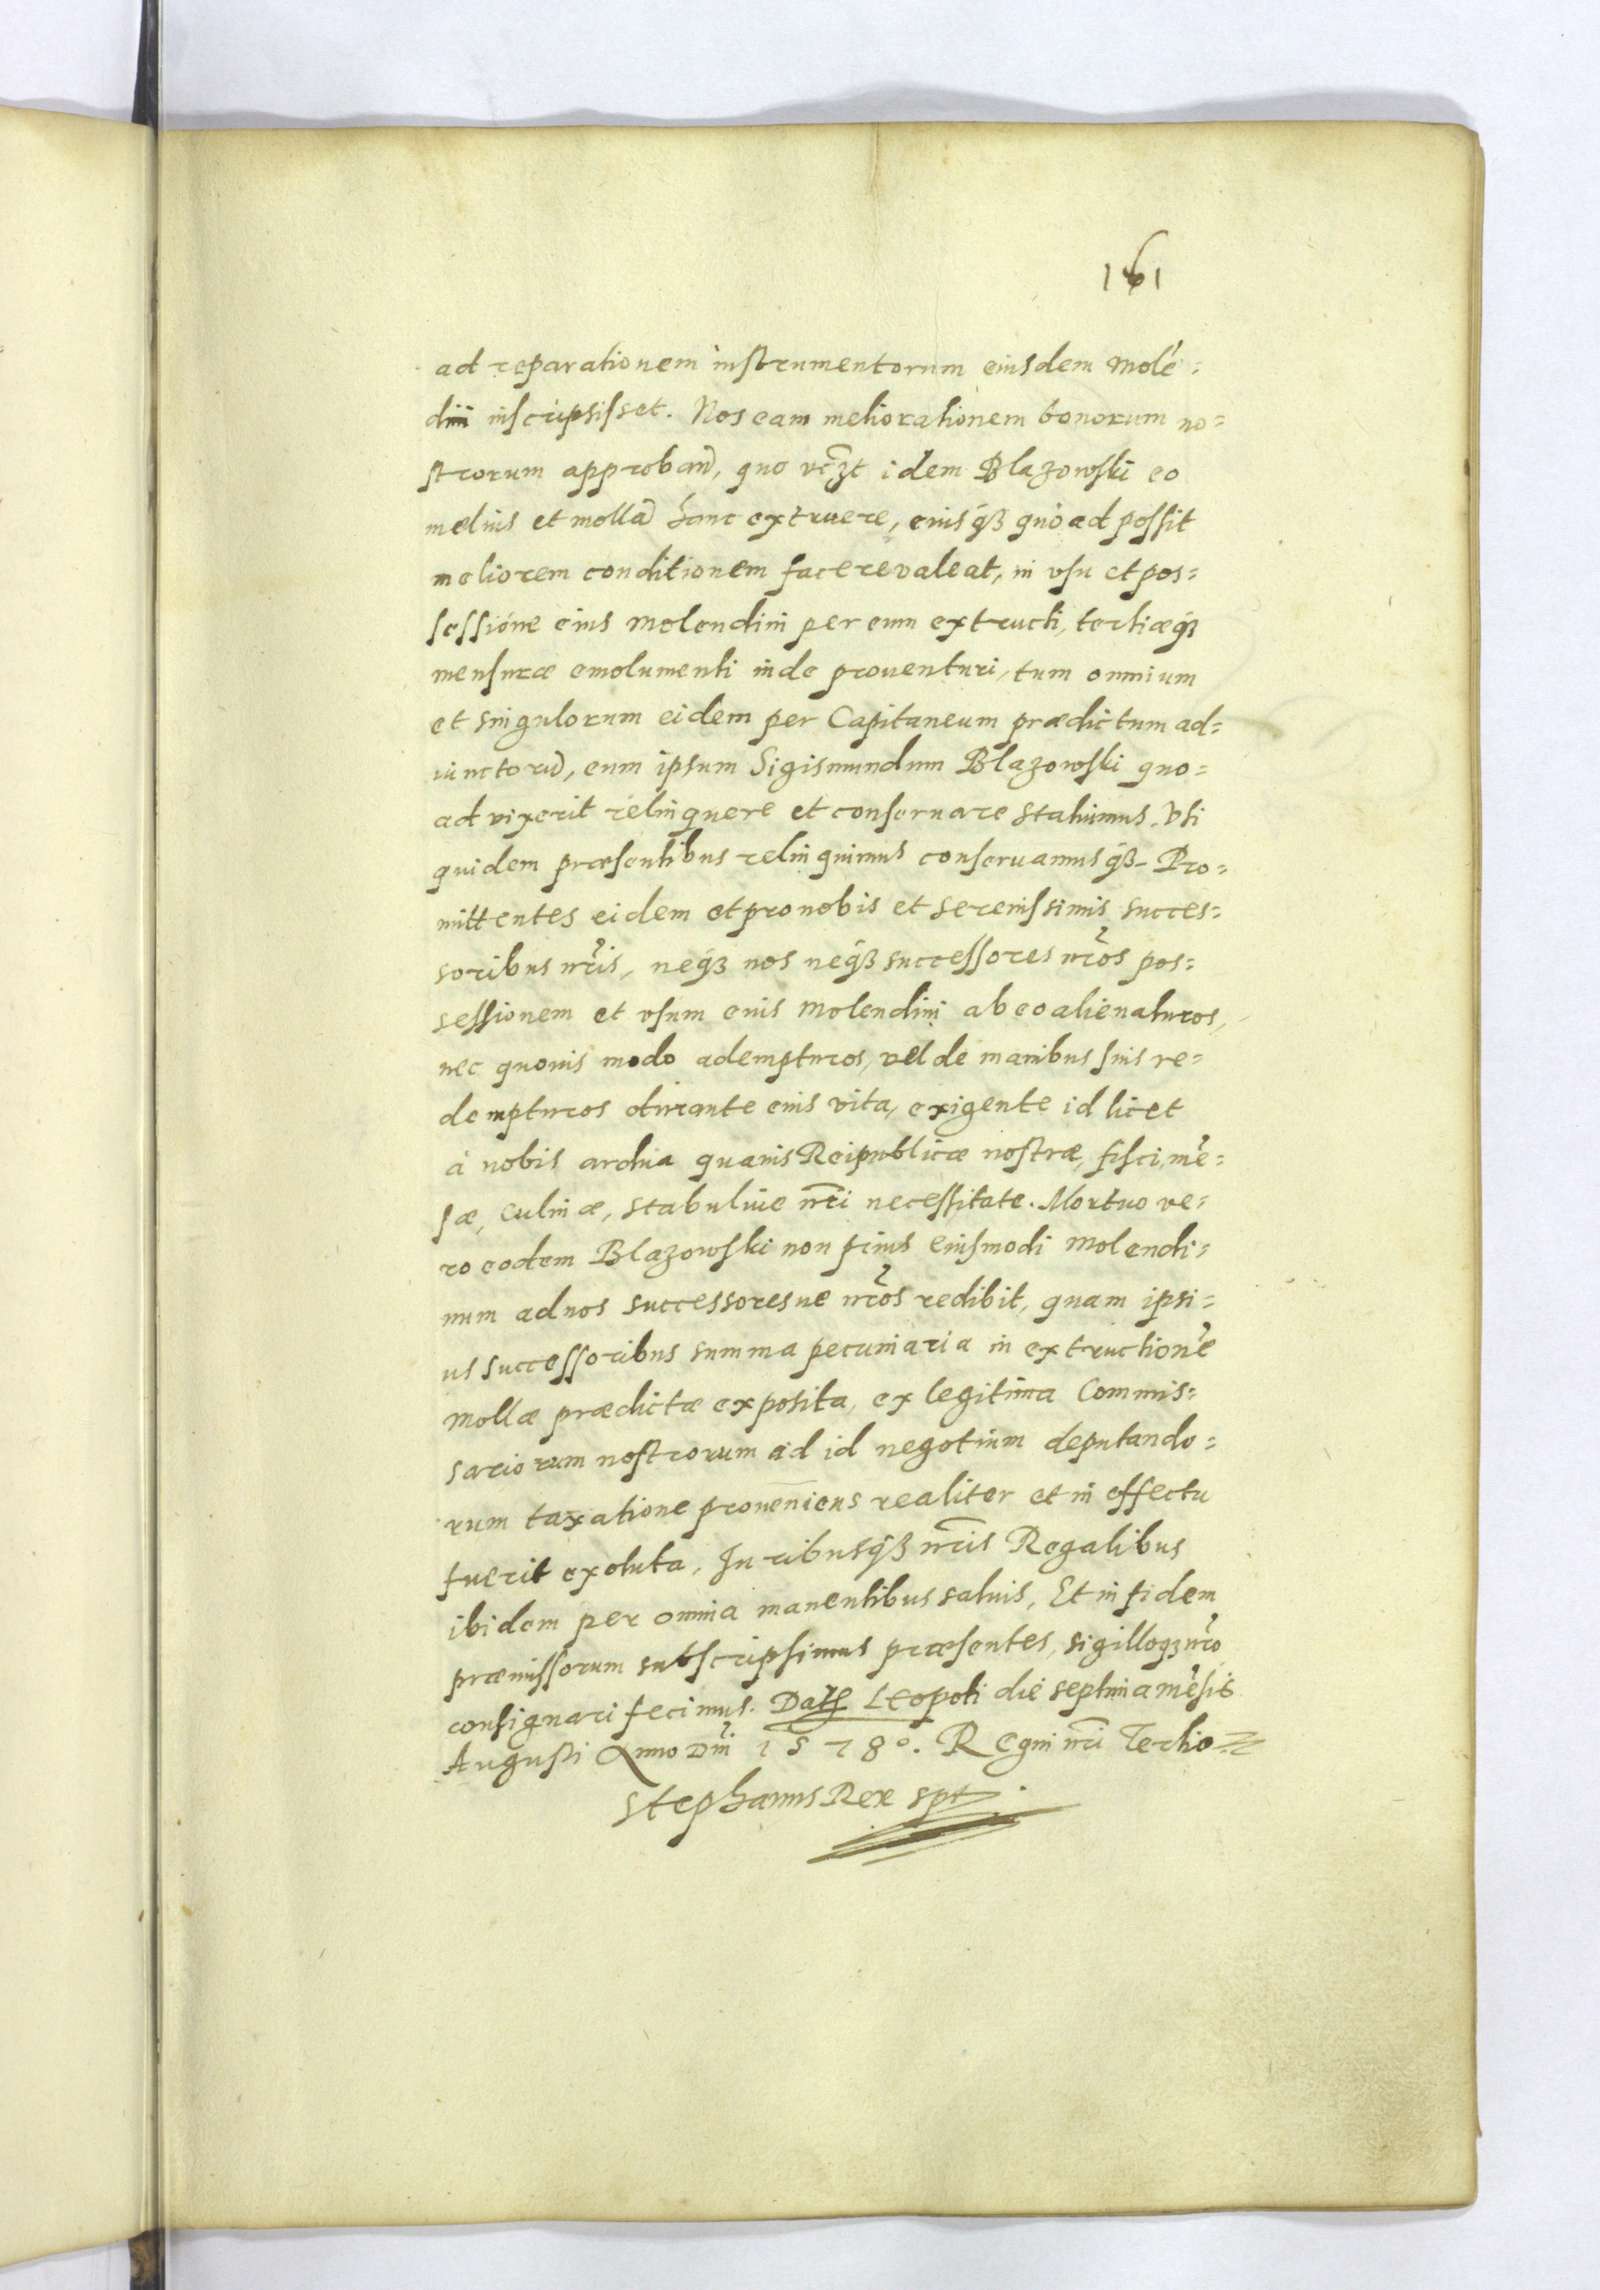 161
ad reparationem instrumentorum eiusdem molē=
dini inscripsisset. Nos eam meliorationem bonorum no=
strorum approban̄, quo vcȝt idem Blazowski eo
melius et mollā hanc extruere, eiusqȝ quoad possit
meliorem conditionem facere valeat, in vsu et pos=
sessione eius molendini per eum extructi, tertiæqȝ
mensuræ emolumenti inde prouenturi, tum omnium
et singulorum eidem per Capitaneum prædictum ad=
iunctorū, eum ipsum Sigismundum Blazowski quo=
ad vixerit relinquere et conseruare statuimus. Vti
quidem præsentibus relinquimus conseruamusqȝ. Pro=
mittentes eidem et pro nobis et serenissimis succes=
soribus nr̄is, neqȝ nos neqȝ successores nr̄os pos=
sessionem et vsum eius molendini ab eo alienaturos,
nec quouis modo adempturos, vel de manibus suis re=
dempturos durante eius vita, exigente id licet
à nobis ardua quauis Reipublicæ nostræ, fisci, mē=
sæ, culinæ, stabuliue nr̄i necessitate. Mortuo ve=
ro eodem Blazowski non prius eiusmodi molendi=
num ad nos successoresue nr̄os redibit, quam ipsi=
us successoribus summa pecuniaria in extructionē
mollæ prædictæ exposita, ex legitima Commis=
sariorum nostrorum ad id negotium deputando=
rum taxatione proueniens realiter et in effectu
fuerit exoluta, Iuribusqȝ nr̄is Regalibus
ibidem per omnia manentibus saluis, Et in fidem
præmissorum subscripsimus præsentes, sigilloqȝ nr̄o
consignari fecimus. Datȝ Leopoli die septima mēsis
Augusti Anno Dn̄i 1578º. Regni nr̄i Tertio
Stephanus Rex spt